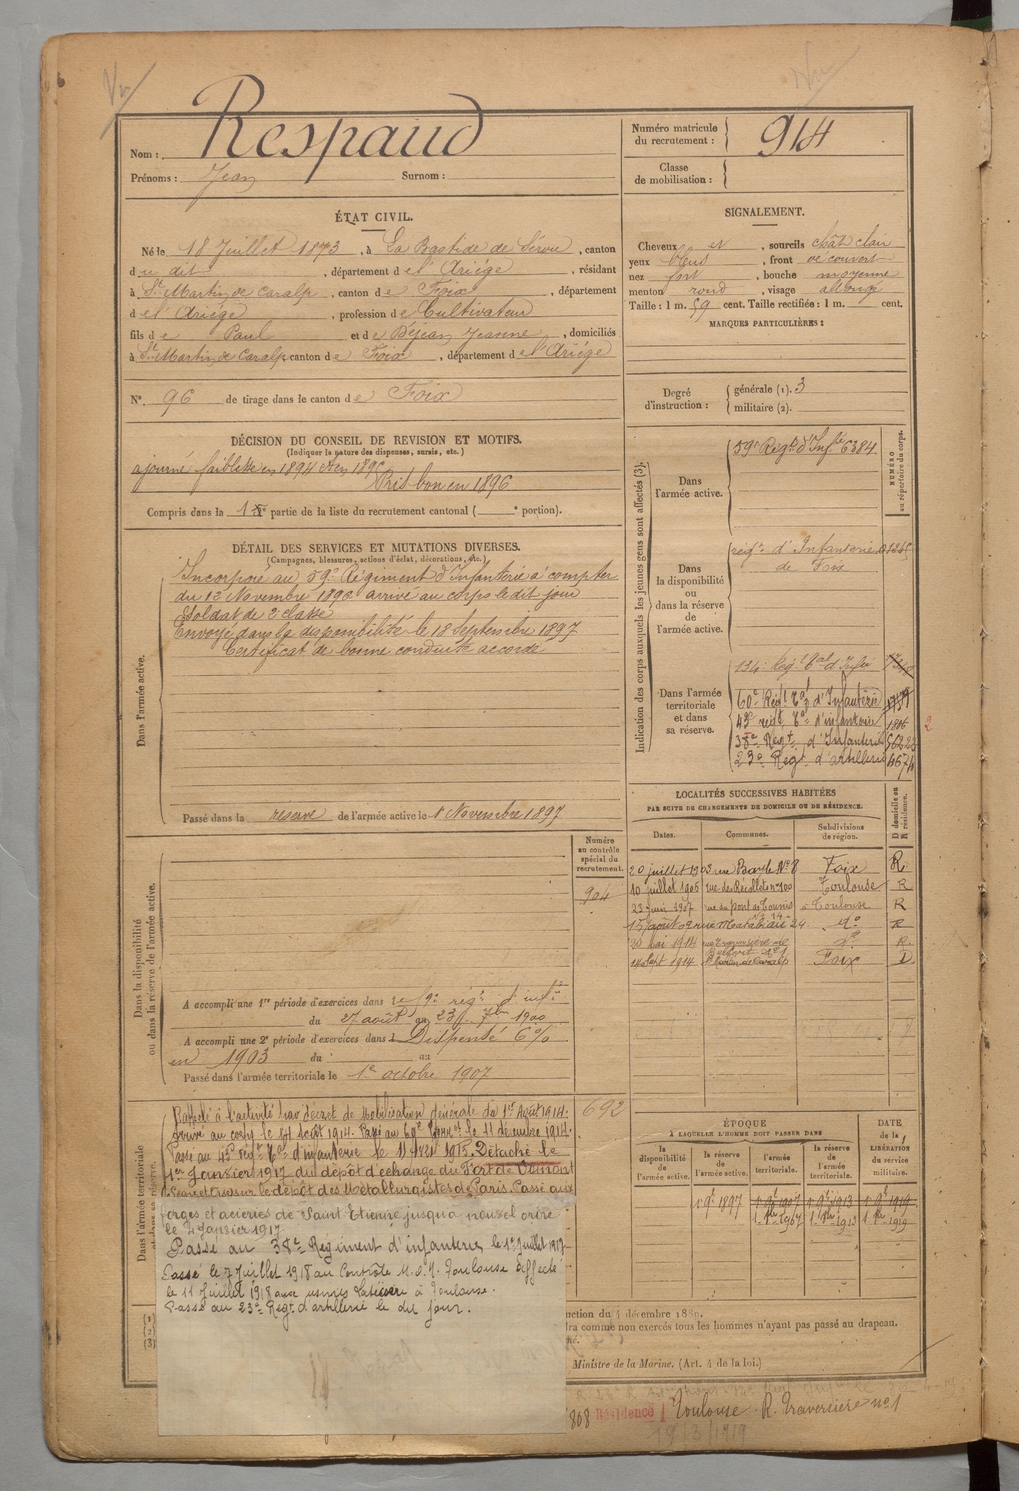 Respaud
Nom :
Prénoms : Jean Surnom :
Numéro matricule
du recrutement : 914
Classe
de mobilisation :
ÉTAT CIVIL.
Né le 18 Juillet 1873, à La Bastide de Sérou, canton
du dit, département de l'Ariége, résidant
à St Martin de Caralp, canton de Foix, département
de l'Ariége, profession de Cultivateur
fils de Paul et de Déjean Jeanne, domiciliés
à St Martin de Caralp canton de Foix, département de l'Ariége
N° 96 de tirage dans le canton de Foix
SIGNALEMENT.
Cheveux et, sourcils chât clair
yeux bleus, front découvert
nez fort, bouche moyenne
menton rond, visage allongé
Taille : 1 m. 59 cent. Taille rectifiée : 1 m. cent.
MARQUES PARTICULIÈRES :
Degré
d'instruction :
générale (1). 3
militaire (2).
DÉCISION DU CONSEIL DE REVISION ET MOTIFS.
(Indiquer la nature des dispenses, sursis, etc.)
ajourné faiblesse en 1894 et en 1895
Pris bon en 1896
Compris dans la 1re partie de la liste du recrutement cantonal ( e portion).
DÉTAIL DES SERVICES ET MUTATIONS DIVERSES.
(Campagnes, blessures, actions d'éclat, décorations, etc.)
Dans l'armée active.
Incorporé au 59e Régiment d'Infanterie à compter
du 12 Novembre 1896 arrivé au corps le dit jour
Soldat de 2e classe
Envoyé dans la disponibilité le 18 Septembre 1897
Certificat de bonne conduite accordé
Passé dans la réserve de l'armée active le 1er Novembre 1897
Indication des corps auxquels les jeunes gens sont affectés (3).
NUMÉRO
au répertoire du corps.
Dans
l'armée active.
59e Régt d'Infie 6384
Dans
la disponibilité
ou dans la réserve
de
l'armée active.
régt d'Infanterie
de Foix
Dans l'armée
territoriale
et dans
sa réserve.
134e Régt Tal d'Infie
60e Régt Tal d'Infanterie
43e régt Tal d'infanterie
38e Régt d'Infanterie
23e Régt d'artillerie
LOCALITÉS SUCCESSIVES HABITÉES
PAR SUITE DE CHANGEMENTS DE DOMICILE OU DE RÉSIDENCE.
Dates. Communes. Subdivisions
de région. D domicile ou
R résidence.
20 juillet 1903 rue Bayle No 8 Foix R
10 juillet 1906 rue des Récollets no 100 Toulouse R
23 juin 1907 rue du pont de Tounis Toulouse R
15 août 09 rue Matabiau 24 do R
30 mai 1914 do R
14 Sept 1914 St Martin de Caralp Foix D
Numéro
au contrôle
spécial du
recrutement.
904
Dans la disponibilité
ou dans la réserve de l'armée active.
A accompli une 1re période d'exercices dans le 59e régt d'infie
du 27 août au 23 7bre 1900
A accompli une 2e période d'exercices dans Dispensé 6%
en 1903 du au
Passé dans l'armée territoriale le 1er octobre 1907
692
Dans l'armée territoriale
Rappelé à l'activité par décret de Mobilisation Générale du 1er Août 1914.
Arrivé au corps le 14 Août 1914. Passé au 60e Terral le 11 décembre 1914.
Passé au 43e régt Tal d'infanterie le 11 Avril 1915. Détaché le
1er Janvier 1917 du dépôt d'échange du Fort de Domont
sur le dépôt des Métallurgistes de Paris. Passé aux
forges et aciéries de Saint Etienne jusqu'à nouvel ordre
le 2 Janvier 1917
Passé au 38e Régiment d'infanterie le 1er Juillet 1917
Passé le 7 Juillet 1918 au Contrôle M.O.M. Toulouse affecté
le 11 Juillet 1918 aux usines Latécoère à Toulouse.
Passé au 23e Régt d'artillerie le du jour.
ÉPOQUE
À LAQUELLE L'HOMME DOIT PASSER DANS
la
disponibilité
de
l'armée active.
la réserve
de
l'armée active.
l'armée
territoriale.
la réserve
de
l'armée
territoriale.
DATE
de la
LIBÉRATION
du service
militaire.
1 9e 1897 1 9e 1907 1 9e 1913 1 9e 1919
1967 1913 1919
(1)
(2)
(3)
uction du 4 décembre 1889.
dra comme non exercés tous les hommes n'ayant pas passé au drapeau.
Ministre de la Marine. (Art. 4 de la loi.)
868 Résidence Toulouse R. Traversière no 1
18/3/1919